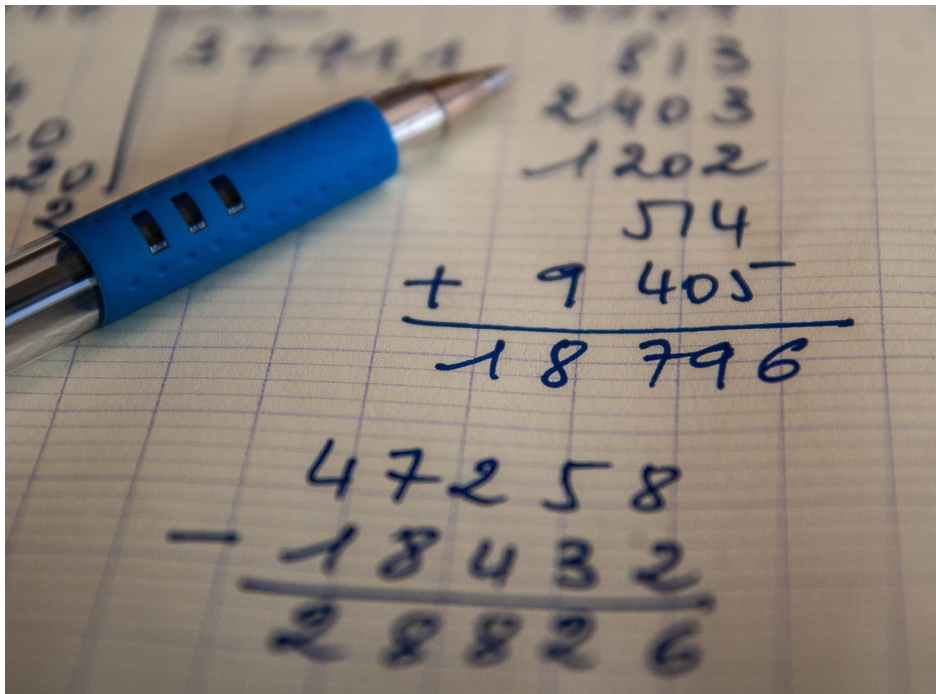 813
2403
1202
20
514
+ 9 405
18 796
47258
- 18432
28826